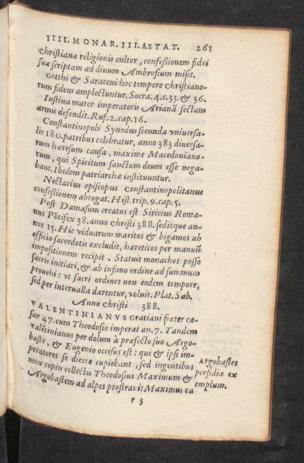 IIII. MONAR. III. AETAT. 261
Christiana religionis cultor, confessionem fidei
suæ scriptam ad divum Ambrosium misit.
Gotthi & Saraceni hoc tempore christiano-
rum fidem amplectuntur. Socra. 4.c.33.& 36.
Iustina mater imperatoris Arianã sectam
armis defendit. Ruf. 2. cap. 16.
Constantinopoli Synodus secunda vniuersa-
lis 180. patribus celebratur, anno 383 diuersa-
rum hæresum causa, maxime Macedoniano-
rum, qui Spiritum sanctum deum esse nega-
bant. Ibidem patriarchæ instituuntur.
Nectarius episcopus Constantinopolitanus
confessionem abrogat. Hist. trip. 9. cap. 5.
Post Damasum creatus est Siricius Roma-
nus Põtifex 38. anno Christi 388. seditque an-
nos 15. Hic viduarum maritos & bigamos ab
officio sacerdotis excludit, hæreticos per manuũ
impositionem recipit. Statuit monachos posse
sacris initiari, & ab infimo ordine ad summum
prouehi: vt sacri ordines non eodem tempore,
sed per interualla darentur, voluit. Plat. Sab.
Anno Christi 388.
VALENTINIANVS Gratiani frater cæ-
sar 47. cum Theodosio imperat an. 7. Tandem
valitinianus per dolum à præfecto suo Argo-
baste, & Eugenio occisus est: qui & ipsi im-
peratores se dicere cupiebant, sed ingentibus
mox copiis collectis Theodosius Maximum &
Argobastem ad alpes prostrauit Maximus ca
Argobastes
perfidiæ ex
emplum.
r 3